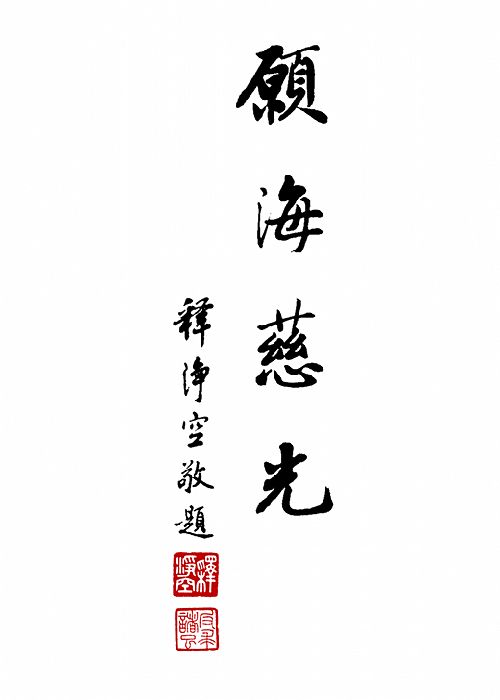 願海慈光
釋淨空敬題
釋淨空